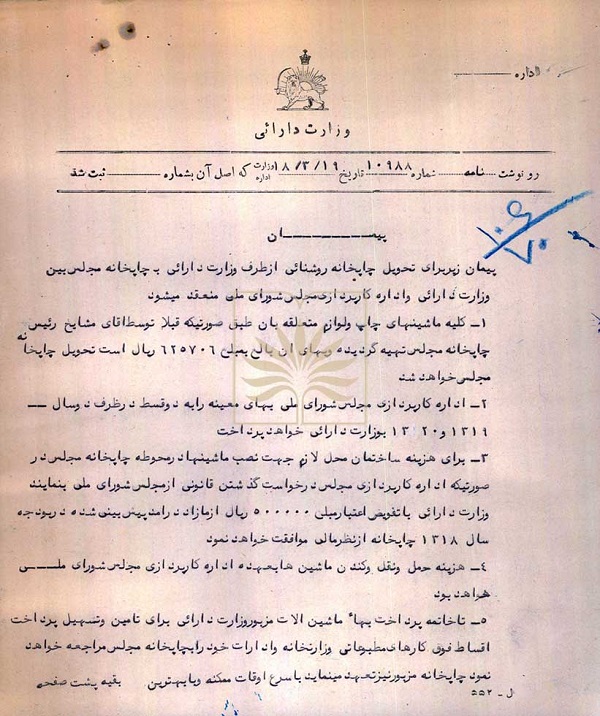 اداره
وزارت دارائی
رونوشت نامه شماره ۱۰۹۸۸ تاریخ ۱۸/۳/۱۹ وزارت اداره که اصل آن بشماره ثبت شد
پیمـــان
پیمان زیر برای تحویل چاپخانه روشنائی از طرف وزارت دارائی به چاپخانه مجلس بین
وزارت دارائی و اداره کارپردازی مجلس شورای ملی منعقد میشود
۱- کلیه ماشینهای چاپ ولوازم متعلقه بان طبق صورتیکه قبلا توسط اقای مشایخ رئیس
چاپخانه مجلس تهیه گردیده وبهای ان بالغ بمبلغ ۶۲۵۷۰۶ ریال است تحویل چاپخانه
مجلس خواهد شد
۲- اداره کارپردازی مجلس شورای ملی بهای معینه را به دوقسط در ظرف دوسال —
۱۳۱۹ و ۱۳۲۰ بوزارت دارائی خواهد پرداخت
۳- برای هزینه ساختمان محل لازم جهت نصب ماشینها در محوطه چاپخانه مجلس در
صورتیکه اداره کارپردازی مجلس درخواست گذشتن قانونی از مجلس شورای ملی بنمایند
وزارت دارائی باتفویض اعتبار مبلغ ۵۰۰۰۰۰ ریال از مازاد درامد پیش بینی شده در بودجه
سال ۱۳۱۸ چاپخانه از نظر مالی موافقت خواهد نمود
۴- هزینه حمل ونقل وکندن ماشین ها بعهده اداره کارپردازی مجلس شورای ملـــی
خواهد بود
۵- تاخاتمه پرداخت بهاء ماشین الات مزبور وزارت دارائی برای تامین وتسهیل پرداخت
اقساط فوق کارهای مطبوعاتی وزارتخانه وادارات خود را بچاپخانه مجلس مراجعه خواهد
نمود چاپخانه مزبور نیز تعهد مینماید باسرع اوقات ممکنه وبا بهترین بقیه پشت صفحه
ل - ۵۵۲